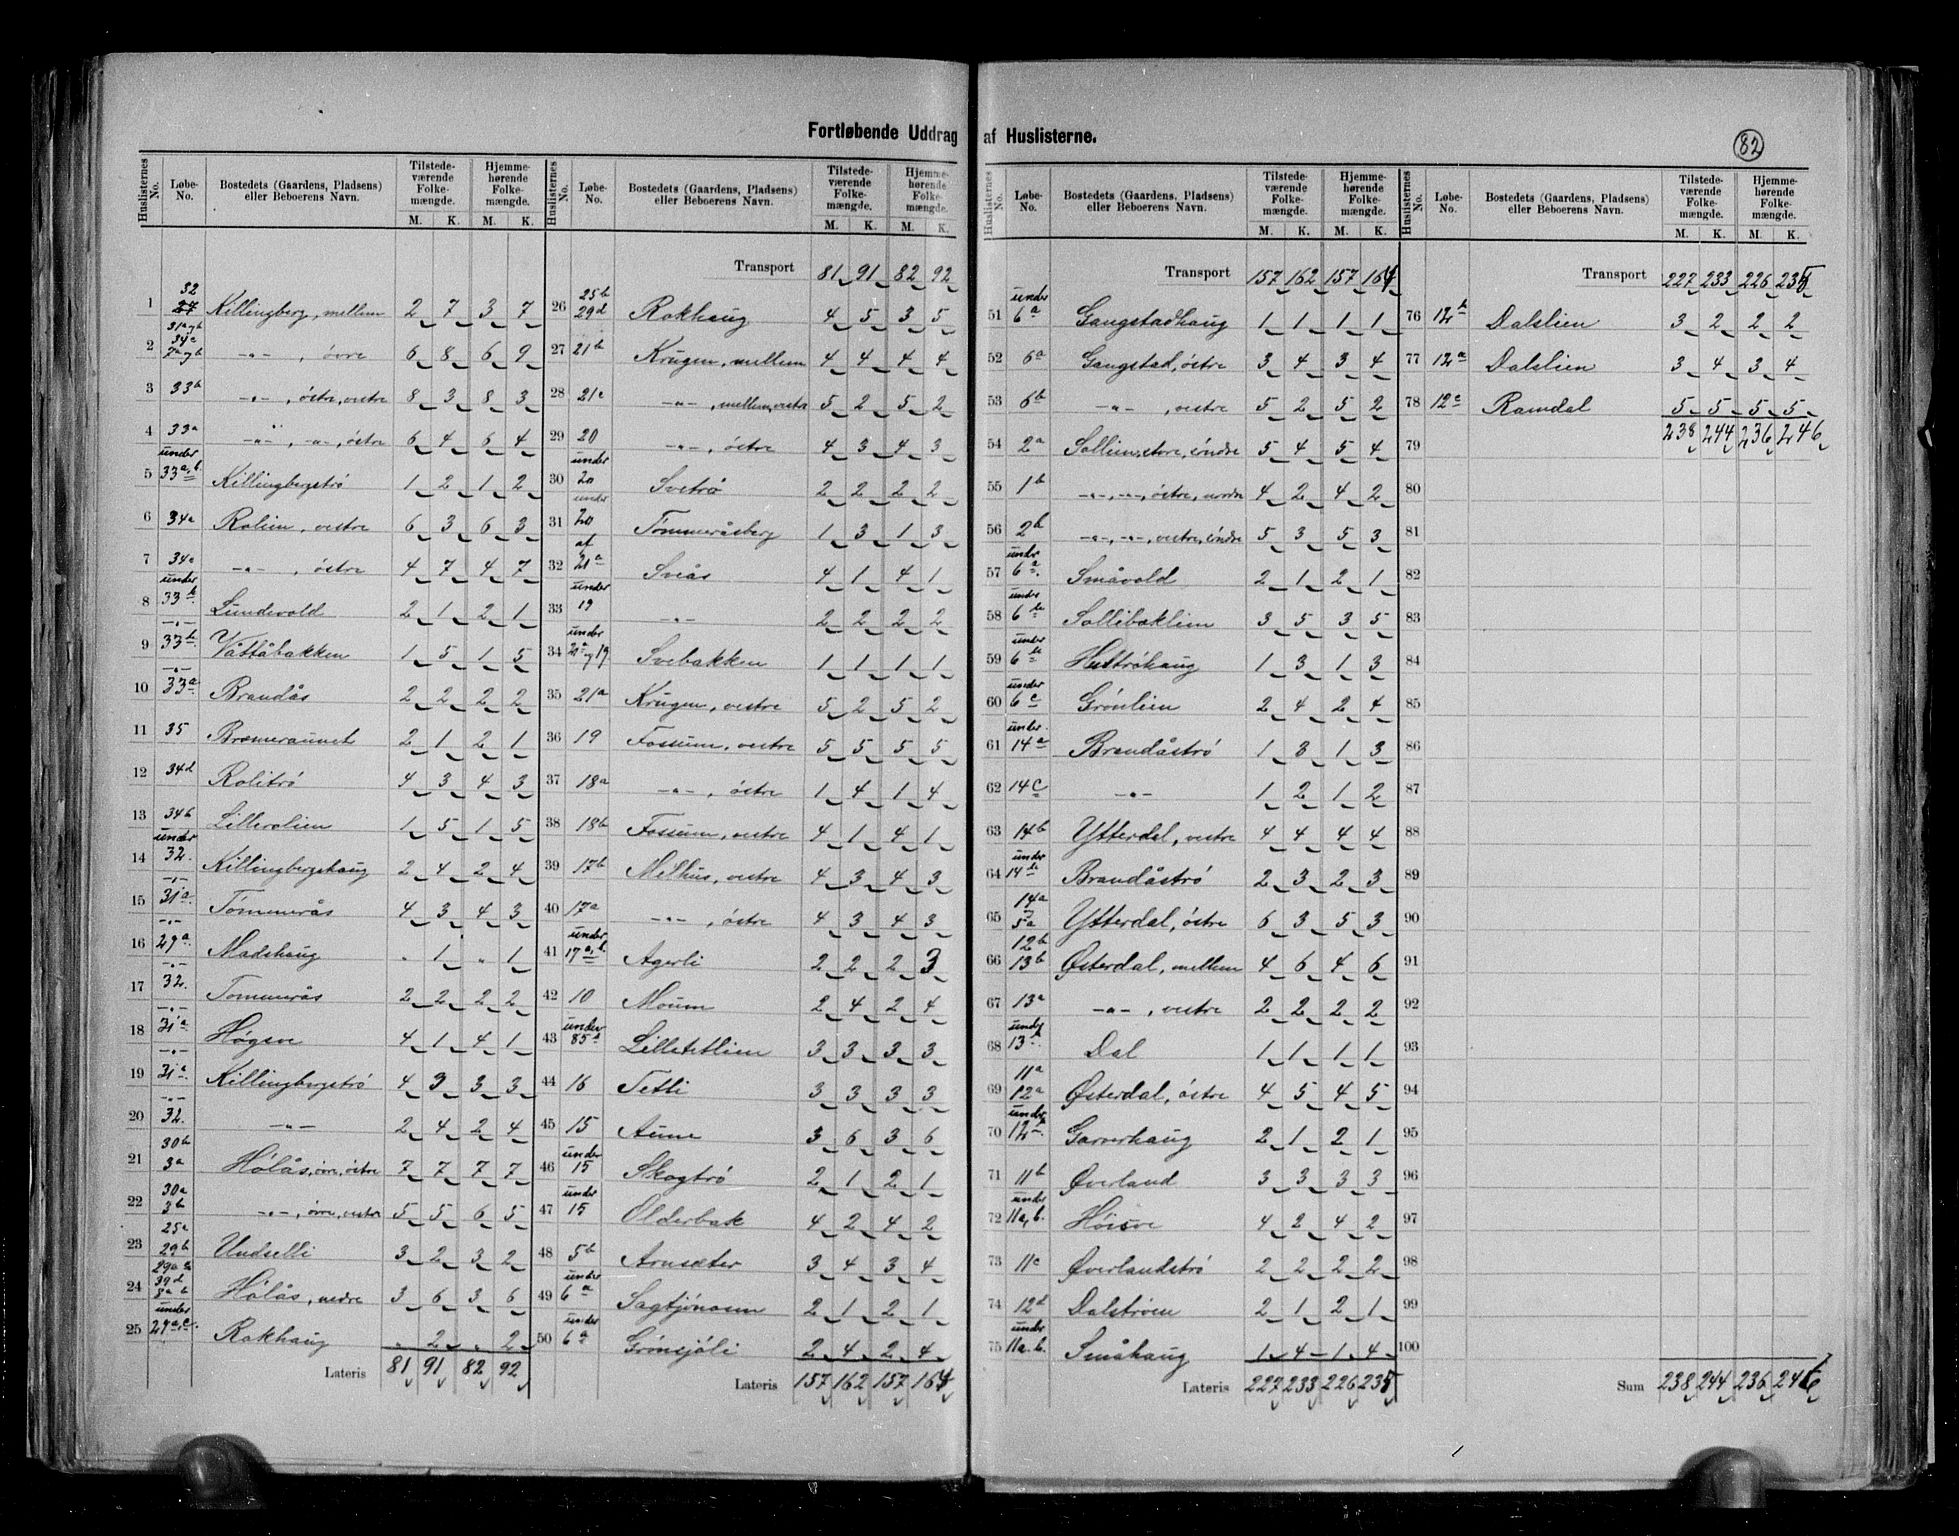 Fortløbende Uddrag af Huslisterne.
82
Huslisternes No. Løbe-No. Bostedets (Gaardens, Pladsens) eller Beboerens Navn. Tilstedeværende Folkemængde. M. K. Hjemmehørende Folkemængde. M. K.
1 32 27 Killingberg, mellem 2 7 3 7
2 31a og b 34c 7a og b -"- , övre 6 8 6 9
3 33b -"- , östre, vestre 8 3 8 3
4 33a -"-, -"-, östre 6 4 6 4
5 under 33a, b Killingbergströ 1 2 1 2
6 34a Rolien, vestre 6 3 6 3
7 34c -"- , östre 4 7 4 7
8 under 33b Lundevold 2 1 2 1
9 -"- 33b Våttåbakken 1 5 1 5
10 -"- 33a Brandås 2 2 2 2
11 35 Bræmeraunet 2 1 2 1
12 34d Rolitrö 4 3 4 3
13 34b Lillerolien 1 5 1 5
14 under 32. Killingbergshaug 2 4 2 4
15 -"- 31a Tömmerås 4 3 4 3
16 -"- 29a Madshaug " 1 " 1
17 -"- 32. Tömmerås 2 2 2 2
18 -"- 31a Högsve 4 1 4 1
19 -"- 31a Killingbergströ 4 3 3 3
20 -"- 32. -"- 2 4 2 4
21 30b 3a Hölås, övre, östre 7 7 7 7
22 30a 3b -"-, övre, vestre 5 5 6 5
23 25a 29b Undselli 3 2 3 2
24 39d 3a b Hölås, nedre 3 6 3 6
25 under 29a c. Rokhaug " 2 " 2
Lateris 81 91 82 92
Huslisternes No. Løbe-No. Bostedets (Gaardens, Pladsens) eller Beboerens Navn. Tilstedeværende Folkemængde. M. K. Hjemmehørende Folkemængde. M. K.
Transport 81 91 82 92
26 25b 29d Rokhaug 4 5 3 5
27 21b Krugen, mellem 4 4 4 4
28 21c -"- , mellem, vestre 5 2 5 2
29 20 -"- , östre 4 3 4 3
30 under 20 Svetrö 2 2 2 2
31 under 20 Tömmeråsberg 1 3 1 3
32 af 21a Sveås 4 1 4 1
33 under 19 -"- 2 2 2 2
34 under 21a og 19 Svebakken 1 1 1 1
35 21a Krugen, vestre 5 2 5 2
36 19 Fossum, vestre 5 5 5 5
37 18a -"- , östre 1 4 1 4
38 18b Fossum, vestre 4 1 4 1
39 17b Melhus, vestre 4 3 4 3
40 17a -"- , östre 4 3 4 3
41 under 17a, b. Agerli 2 2 2 3
42 10 Moum 2 4 2 4
43 under 85a Lilletetlien 3 3 3 3
44 16 Tetli 3 3 3 3
45 15 Aune 3 6 3 6
46 under 15 Skogtrö 2 1 2 1
47 under 15 Olderbak 4 2 4 2
48 5b Arnsæter 3 4 3 4
49 under 6a Sagtjönosen 2 1 2 1
50 under 6a Grönsjöli 2 4 2 4
Lateris 157 162 157 164
Huslisternes No. Løbe-No. Bostedets (Gaardens, Pladsens) eller Beboerens Navn. Tilstedeværende Folkemængde. M. K. Hjemmehørende Folkemængde. M. K.
Transport 157 162 157 164
51 under 6a Gangstadhaug 1 1 1 1
52 6a Gangstad, östre 3 4 3 4
53 6b -"- , vestre 5 2 5 2
54 2a Sollien, store, söndre 5 4 5 4
55 1b -"-, -"-, östre, nordre 4 2 4 2
56 2b -"-, -"-, vestre, söndre 5 3 5 3
57 under 6a. Småvold 2 1 2 1
58 under 6b Sollibaklien 3 5 3 5
59 under 6b Huströhaug 1 3 1 3
60 under 6c Grönlien 2 4 2 4
61 under 14a Brandåströ 1 3 1 3
62 14c -"- 1 2 1 2
63 14b Ytterdal, vestre 4 4 4 4
64 under 14b Brandåströ 2 3 2 3
65 14a 5a Ytterdal, östre 6 3 5 3
66 12b 13b Østerdal, mellem 4 6 4 6
67 13a -"- , vestre 2 2 2 2
68 under 13b Dal 1 1 1 1
69 11a 12a Østerdal, östre 4 5 4 5
70 under 12b Garverhaug 2 1 2 1
71 11b Øverland 3 3 3 3
72 under 11a, b. Höisve 4 2 4 2
73 11c Øverlandströ 2 2 2 2
74 12d Dalströen 2 1 2 1
75 under 11a. b. Småhaug 1 4 1 4
Lateris 227 233 226 235
Huslisternes No. Løbe-No. Bostedets (Gaardens, Pladsens) eller Beboerens Navn. Tilstedeværende Folkemængde. M. K. Hjemmehørende Folkemængde. M. K.
Transport 227 233 226 235
76 12b Dalslien 3 2 2 2
77 12a Dalslien 3 4 3 4
78 12c Ramdal 5 5 5 5
79 238 244 236 246
80
81
82
83
84
85
86
87
88
89
90
91
92
93
94
95
96
97
98
99
100
Sum 238 244 236 246